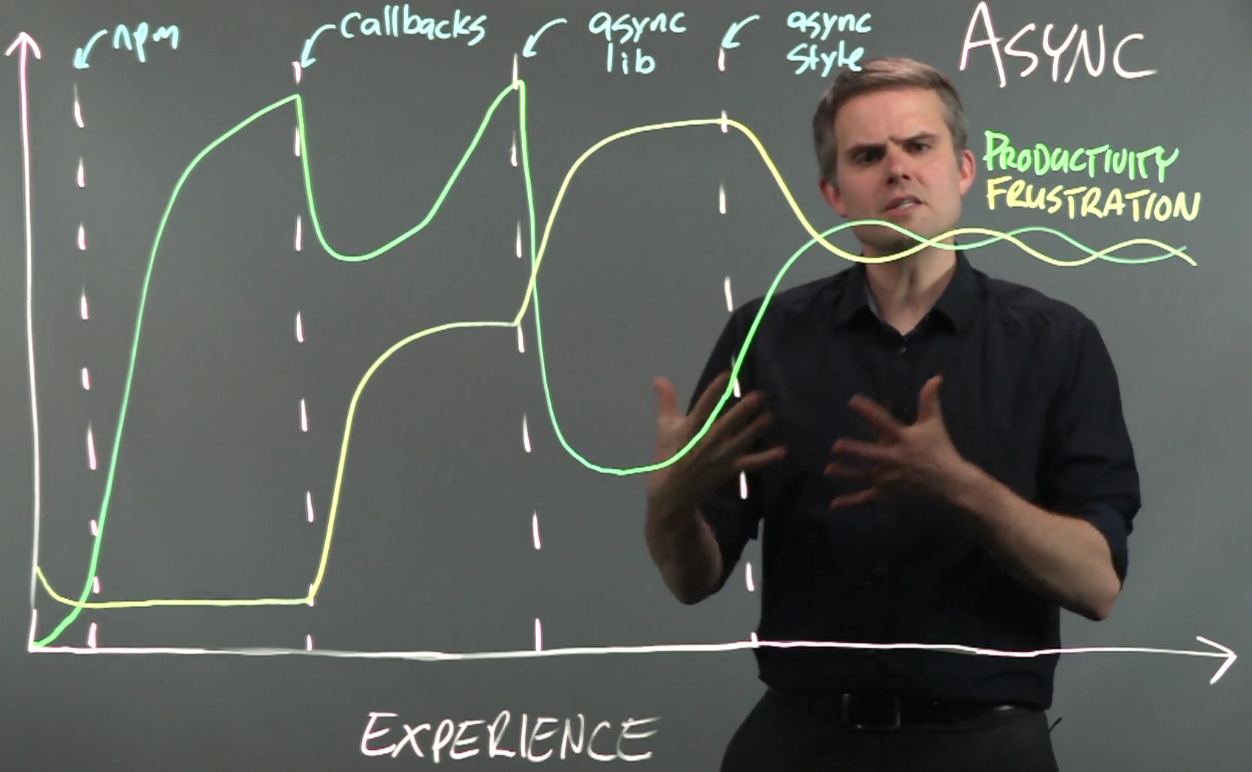 npm
callbacks
async
lib
async
style
ASYNC
PRODUCTIVITY
FRUSTRATION
EXPERIENCE